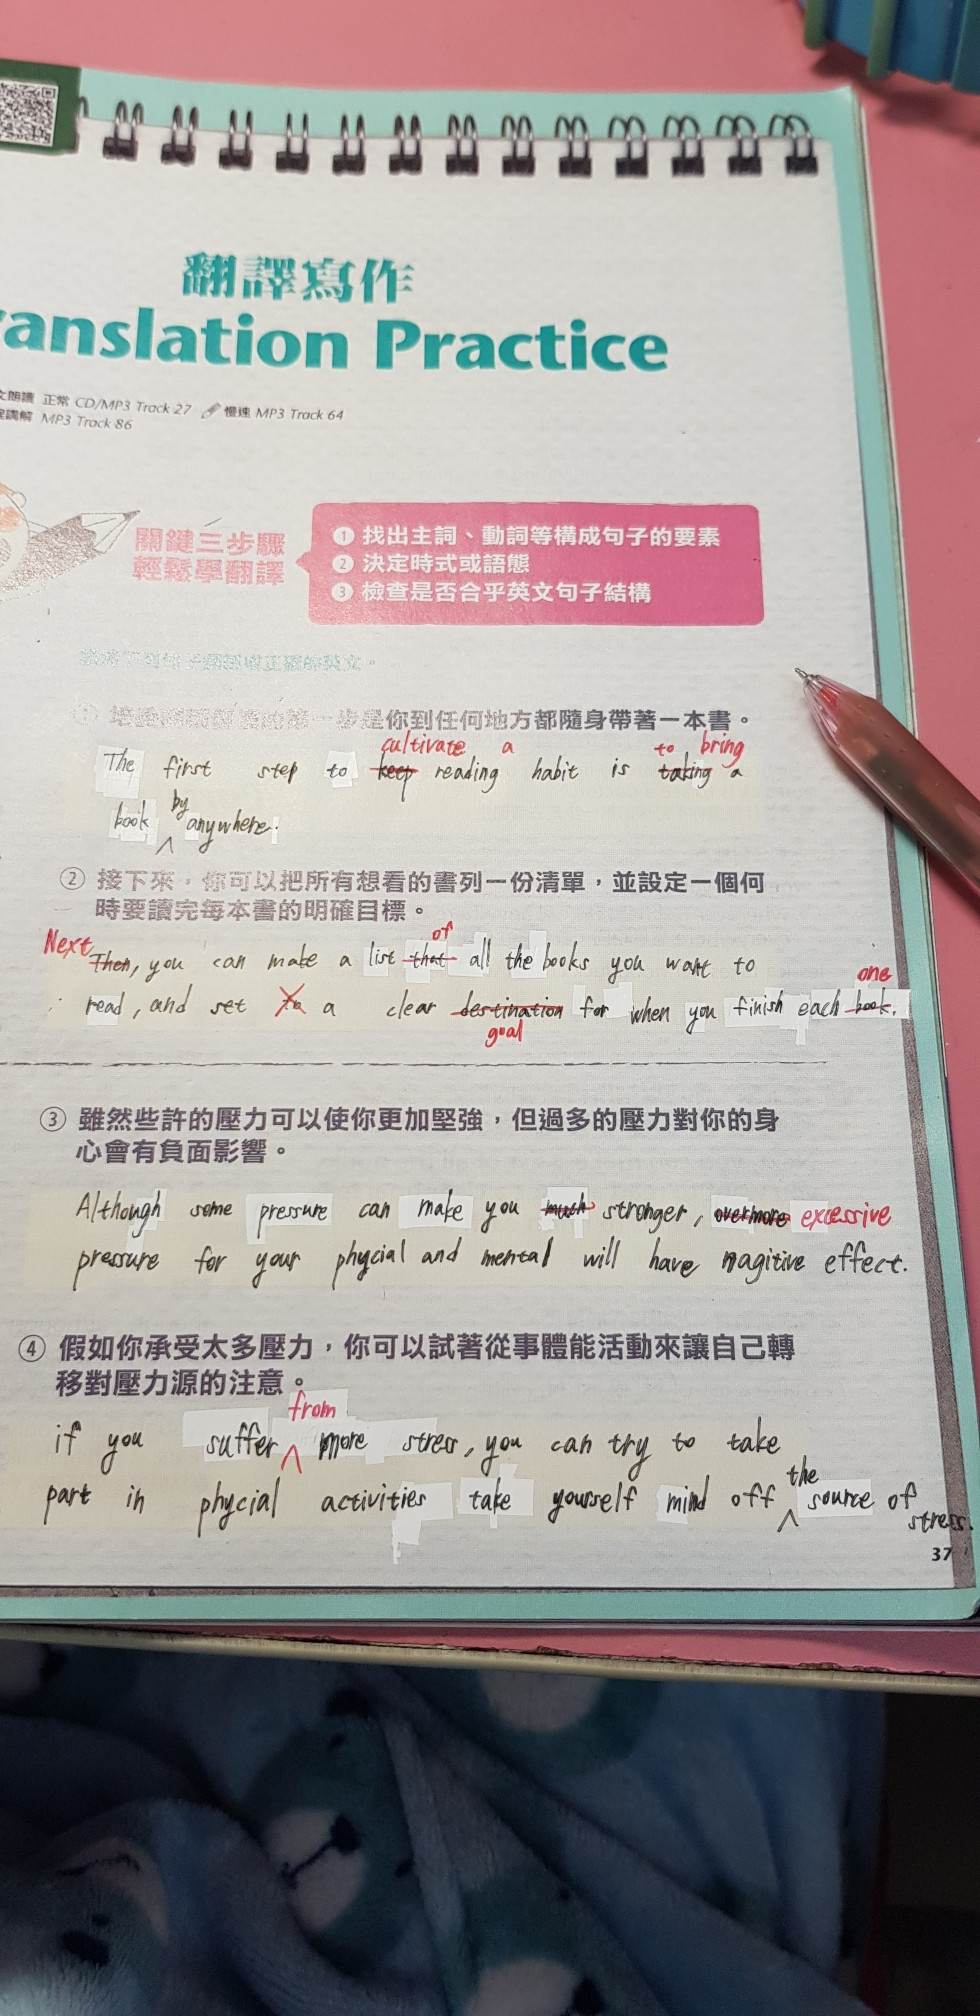 翻譯寫作
anslation Practice
正常 CD/MP3 Track 27 慢速 MP3 Track 64
MP3 Track 86
關鍵三步驟
輕鬆學翻譯
① 找出主詞、動詞等構成句子的要素
② 決定時式或語態
③ 檢查是否合乎英文句子結構
一步是你到任何地方都隨身帶著一本書。
cultivate a to bring
The first step to keep reading habit is taking a
by
book ^ anywhere.
② 接下來，你可以把所有想看的書列一份清單，並設定一個何
時要讀完每本書的明確目標。
Next of
Then, you can make a list that all the books you want to
one
read, and set to a clear destination for when you finish each book.
goal
③ 雖然些許的壓力可以使你更加堅強，但過多的壓力對你的身
心會有負面影響。
Although some pressure can make you much stronger, overmore excessive
pressure for your phycial and mental will have nagitive effect.
④ 假如你承受太多壓力，你可以試著從事體能活動來讓自己轉
移對壓力源的注意。
from
if you suffer ^ more stress, you can try to take
the
part in phycial activities take yourself mind off ^ source of
stress.
37